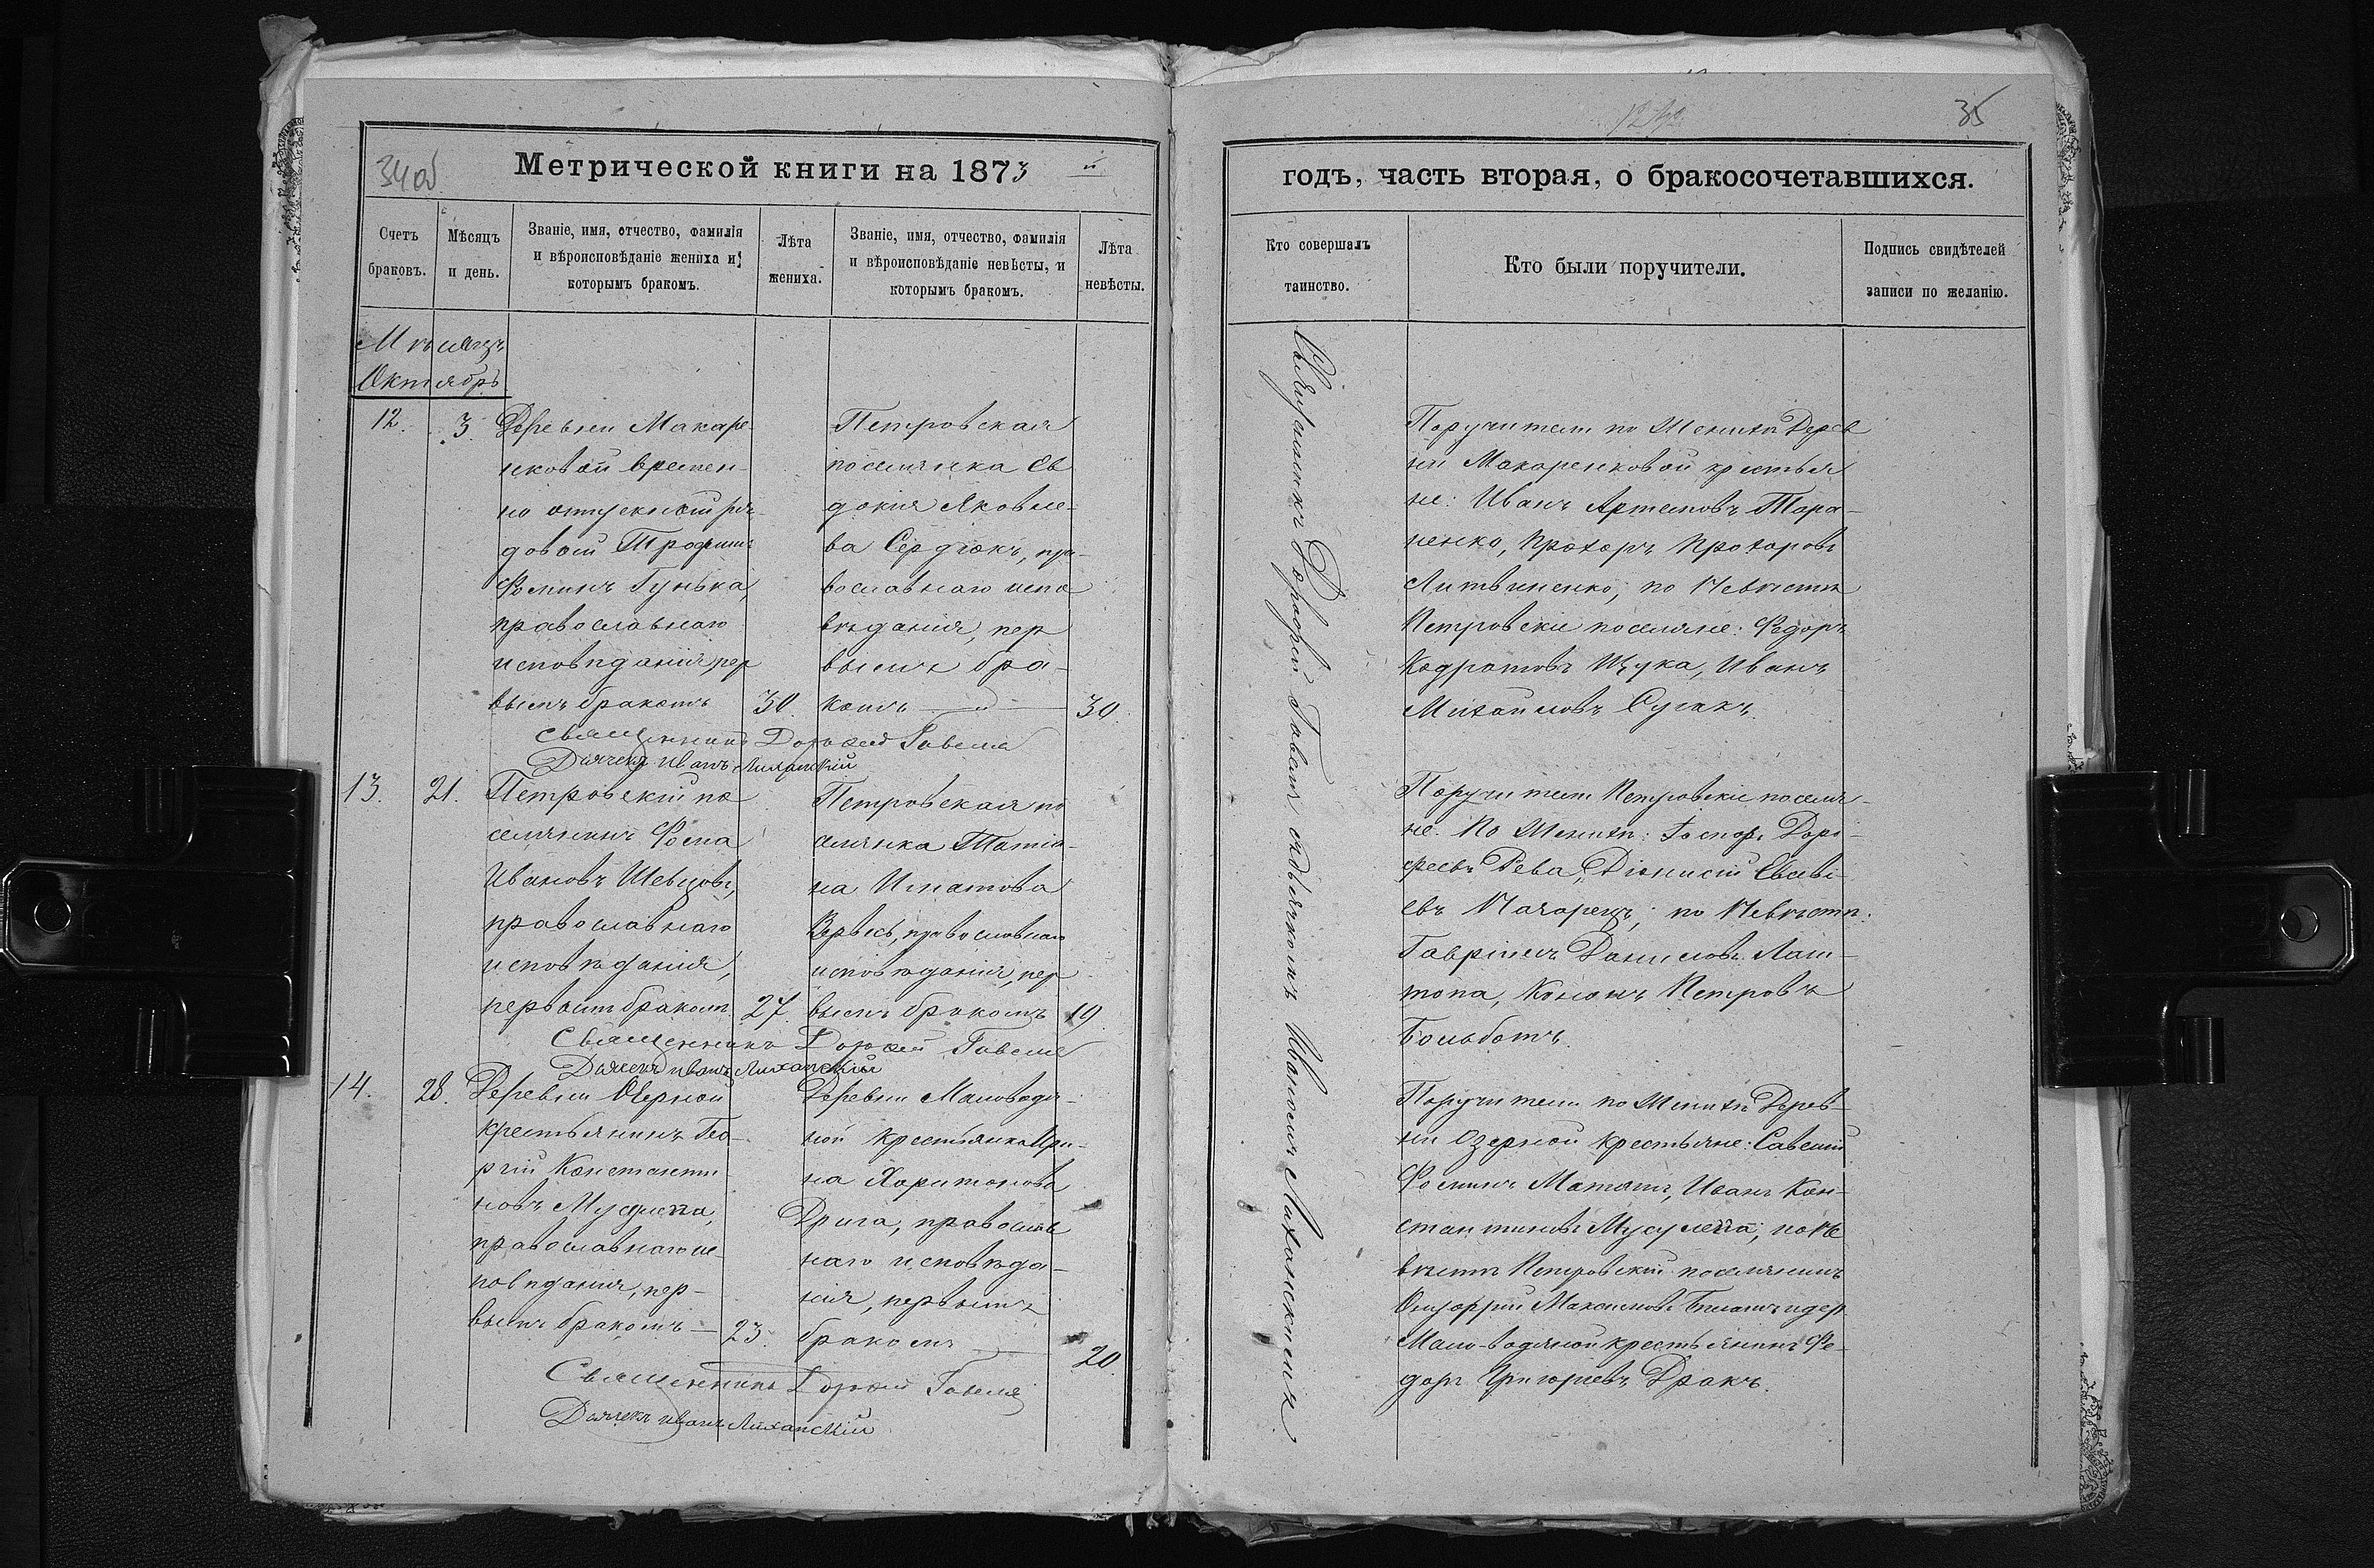 34об
Метрической книги на 1873 й
Счетъ браковъ.
Мѣсяцъ и день.
Званіе, имя, отчество, фамилія и вѣроисповѣданіе жениха и которымъ бракомъ.
Лѣта жениха.
Званіе, имя, отчество, фамилія и вѣроисповѣданіе невѣсты, и которымъ бракомъ.
Лѣта невѣсты.
Мѣсяцъ
Октябрь
12.
3.
Деревни Макаре-
нковой времен-
но отпускной ря-
довой Трофимъ
Фоминъ Гунька,
православнаго
исповѣданія, пер
вымъ бракомъ
30.
Петровская
поселянка Ев
докія Яковле-
ва Сердюкъ, пра-
вославнаго испо
вѣданія, пер
вымъ бра-
комъ
30.
Священникъ Дорофей Гавеля
Дьячекъ Иванъ Лиханскій
13.
21.
Петровскій по
селянинъ Фома
Ивановъ Шевцовъ,
православнаго
исповѣданія,
первымъ бракомъ
27.
Петровская по
селянка Татіа-
на Игнатова
православнаго
исповѣданія, пер
вымъ бракомъ
19
Священникъ Дорофей Гавеля
Дьячекъ Иванъ Лиханскій
14.
28.
Деревни Озерной
крестьянинъ Гео-
ргій Константи
новъ
православнаго ис-
повѣданія, пер-
вымъ бракомъ
23.
Деревни Маловодя-
ной крестьянка Ири-
на Харитонова
Дрига, православ
наго исповѣда-
нія, первымъ
бракомъ
20
Священникъ Дорофей Гавеля
Дьячекъ Иванъ Лиханскій
35
годъ, часть вторая, о бракосочетавшихся.
Кто совершалъ таинство.
Кто были поручители.
Подпись свидѣтелей записи по желанію.
Священникъ Дорофей Гавеля съ дьячкомъ Иваномъ Лиханскимъ.
Поручители по женихѣ Дерев
ни Макаренковой крестья
не: Иванъ Артемовъ Тара-
ненко, Прохоръ Прохоровъ
Литвиненко; по Невѣстѣ
Петровскіе поселяне: Федоръ
Кодратовъ Щука, Иванъ
Михайловъ Сугакъ.
Поручители Петровскіе поселя-
не. По женихѣ: Доро-
феевъ Рева, Діонисій Евсеві-
евъ; по Невѣстѣ:
Гавріилъ Даниловъ Лаш-
топа, Кононъ Петровъ
Больботъ.
Поручители по женихѣ Дерев-
ни Озерной крестьяне: Савелій
Фоминъ Иванъ Кон-
стантиновъ по Не
вѣстѣ Петровскій поселянинъ
Онуфрій Максимовъ и дер
Мало-водяной крестьянинъ Фе-
доръ Григорьевъ Дракъ.